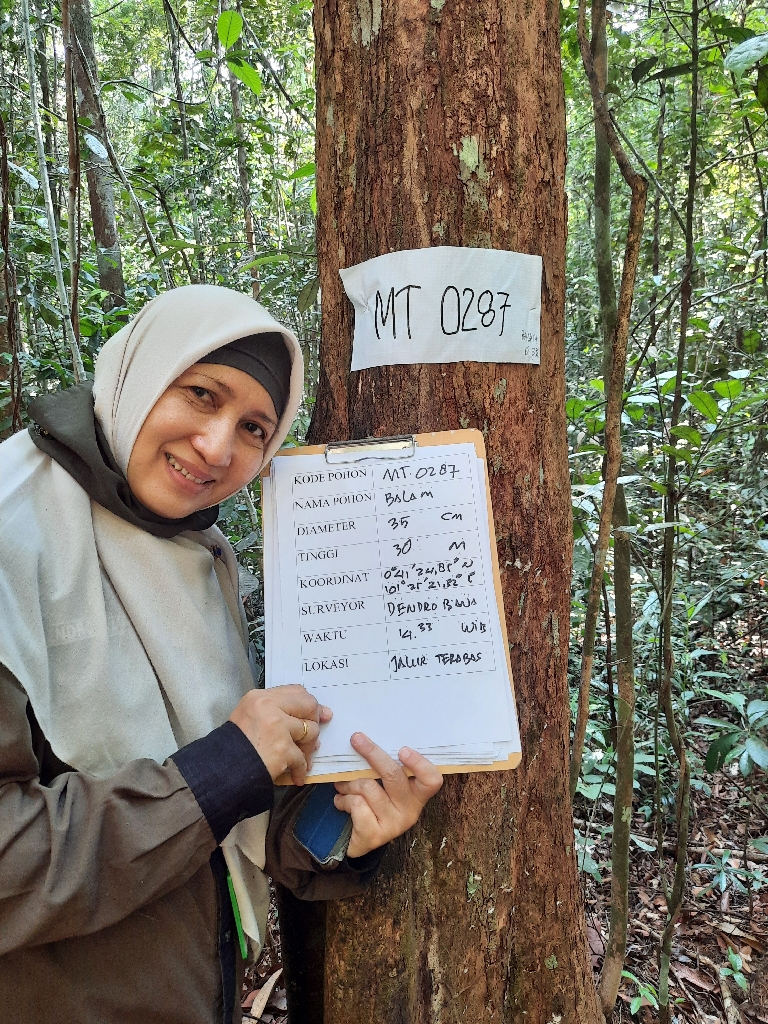 MT 0287
KODE POHON MT 0287
NAMA POHON BALAM
DIAMETER 35 Cm
TINGGI 30 M
KOORDINAT 0°41'24,85" N
101°25'21,82" E
SURVEYOR DENDRO
WAKTU 14.33 WIB
LOKASI JALUR TERABAS